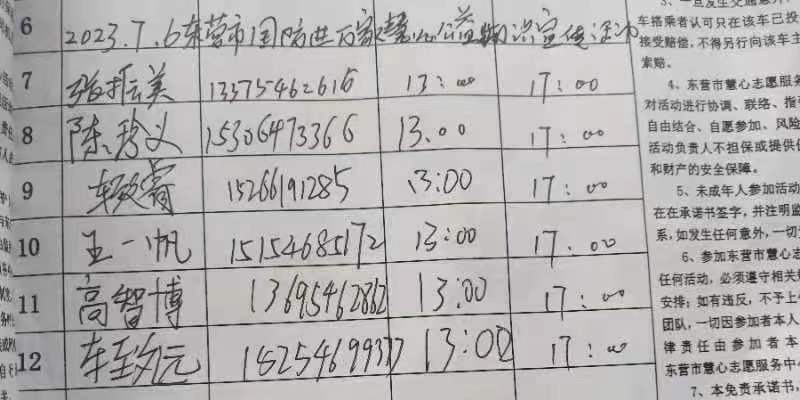 6 2023.7.6东营市国防进万家慧心公益 宣传活动
7 张振美 13375462616 13:00 17:00
8 陈玲义 15306473366 13.00 17:00
9 15266191285 13:00 17:00
10 王一帆 15154685172 13:00 17:00
11 高智博 13695462862 13:00 17:00
12 车 元 13:00 17:00
车搭乘者认可只在该车已投
接受赔偿，不得另行向该车主
索赔。
4、东营市慧心志愿服务
对活动进行协调、联络、指
自由结合、自愿参加、风险
活动负责人不担保或提供
和财产的安全保障。
5、未成年人参加活动
在在承诺书签字，并注明监
系，如发生任何意外，一切
6、参加东营市慧心志
任何活动，必须遵守相关
安排；如有违反，不予上
团队，一切因参加者本人
律责任由参加者本
东营市慧心志愿服务中
7、本免责承诺书，